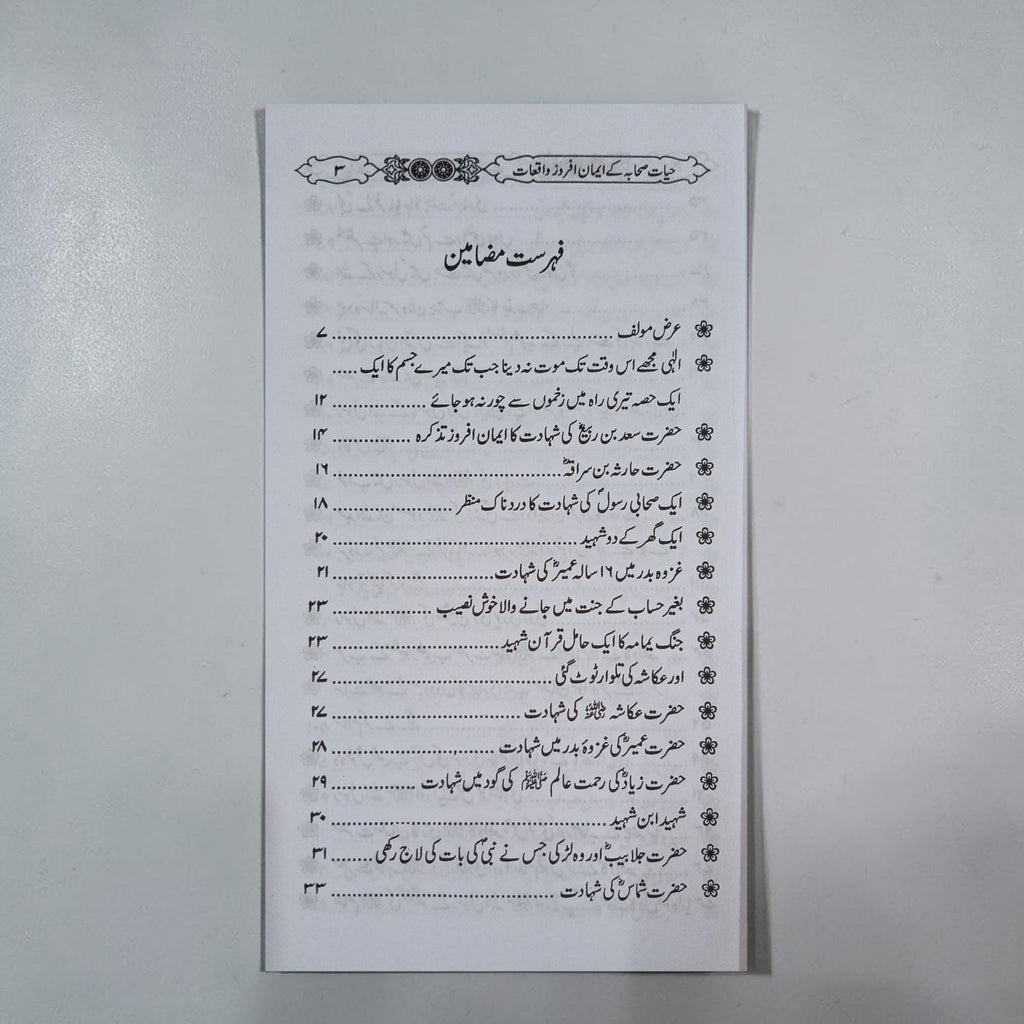 حیات صحابہ کے ایمان افروز واقعات ۳
فہرست مضامین
عرض مولف ........ ۷
الٰہی مجھے اس وقت تک موت نہ دینا جب تک میرے جسم کا ایک .....
ایک حصہ تیری راہ میں زخموں سے چور نہ ہو جائے ........ ۱۲
حضرت سعد بن ربیعؓ کی شہادت کا ایمان افروز تذکرہ ........ ۱۴
حضرت حارثہ بن سراقہؓ ........ ۱۶
ایک صحابی رسولؐ کی شہادت کا دردناک منظر ........ ۱۸
ایک گھر کے دو شہید ........ ۲۰
غزوہ بدر میں ۱۶ سالہ عمیرؓ کی شہادت ........ ۲۱
بغیر حساب کے جنت میں جانے والا خوش نصیب ........ ۲۳
جنگ یمامہ کا ایک حامل قرآن شہید ........ ۲۳
اور عکاشہ کی تلوار ٹوٹ گئی ........ ۲۷
حضرت عکاشہ رضی اللہ عنہ کی شہادت ........ ۲۷
حضرت عمیرؓ کی غزوۂ بدر میں شہادت ........ ۲۸
حضرت زیادؓ کی رحمت عالم ﷺ کی گود میں شہادت ........ ۲۹
شہید ابن شہید ........ ۳۰
حضرت جلابیبؓ اور وہ لڑکی جس نے نبیؐ کی بات کی لاج رکھی ........ ۳۱
حضرت شماسؓ کی شہادت ........ ۳۳